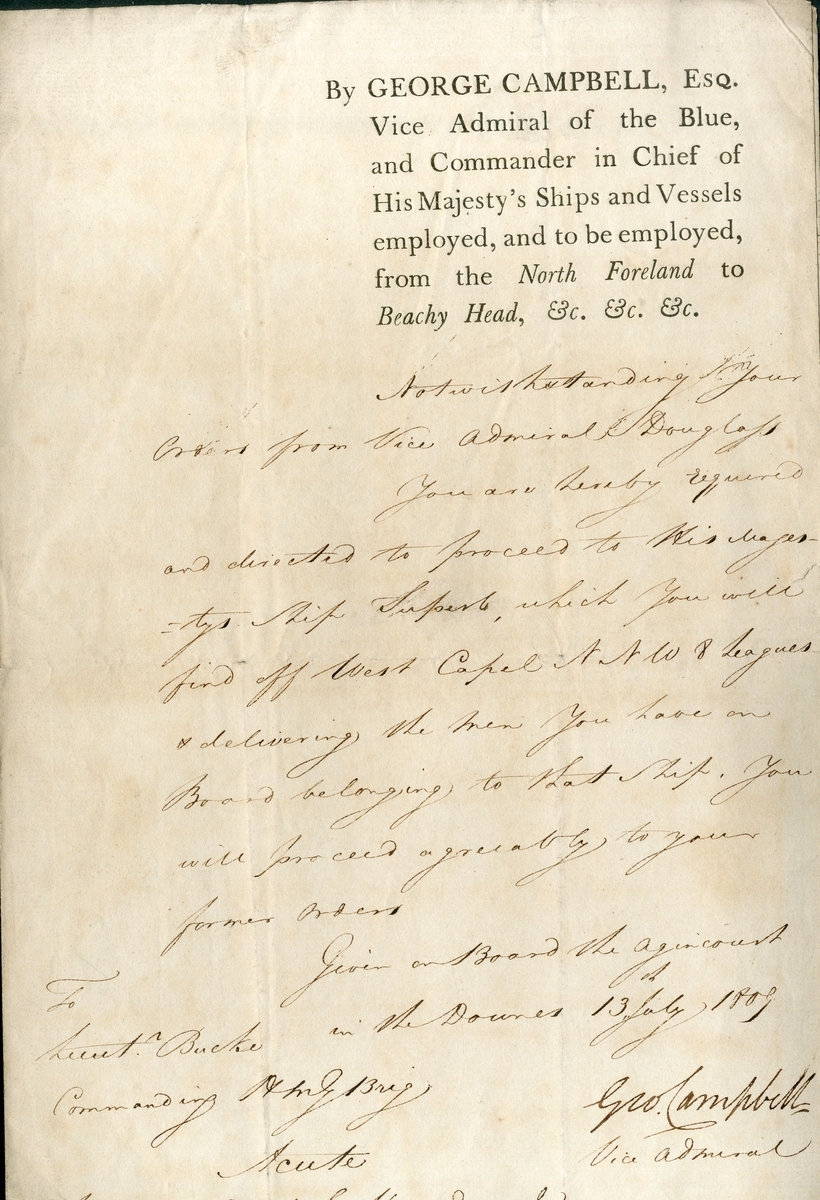 By GEORGE CAMPBELL, Esq.
Vice Admiral of the Blue,
and Commander in Chief of
His Majesty's Ships and Vessels
employed, and to be employed,
from the North Foreland to
Beachy Head, &c. &c. &c.
Notwithstanding Your
Orders from Vice Admiral Douglass
You are hereby required
and directed to proceed to His Majes-
=tys Ship Superb, which You will
find off West Capel N N W 8 Leagues
& delivering the Men You have on
Board belonging to that Ship. You
will proceed agreeably to your
former Orders
Given on Board the Agincourt
in the Downes 13th July 1809
To
Lieut. Bucke
Commanding Brig
Acute
Geo. Campbell
Vice Admiral